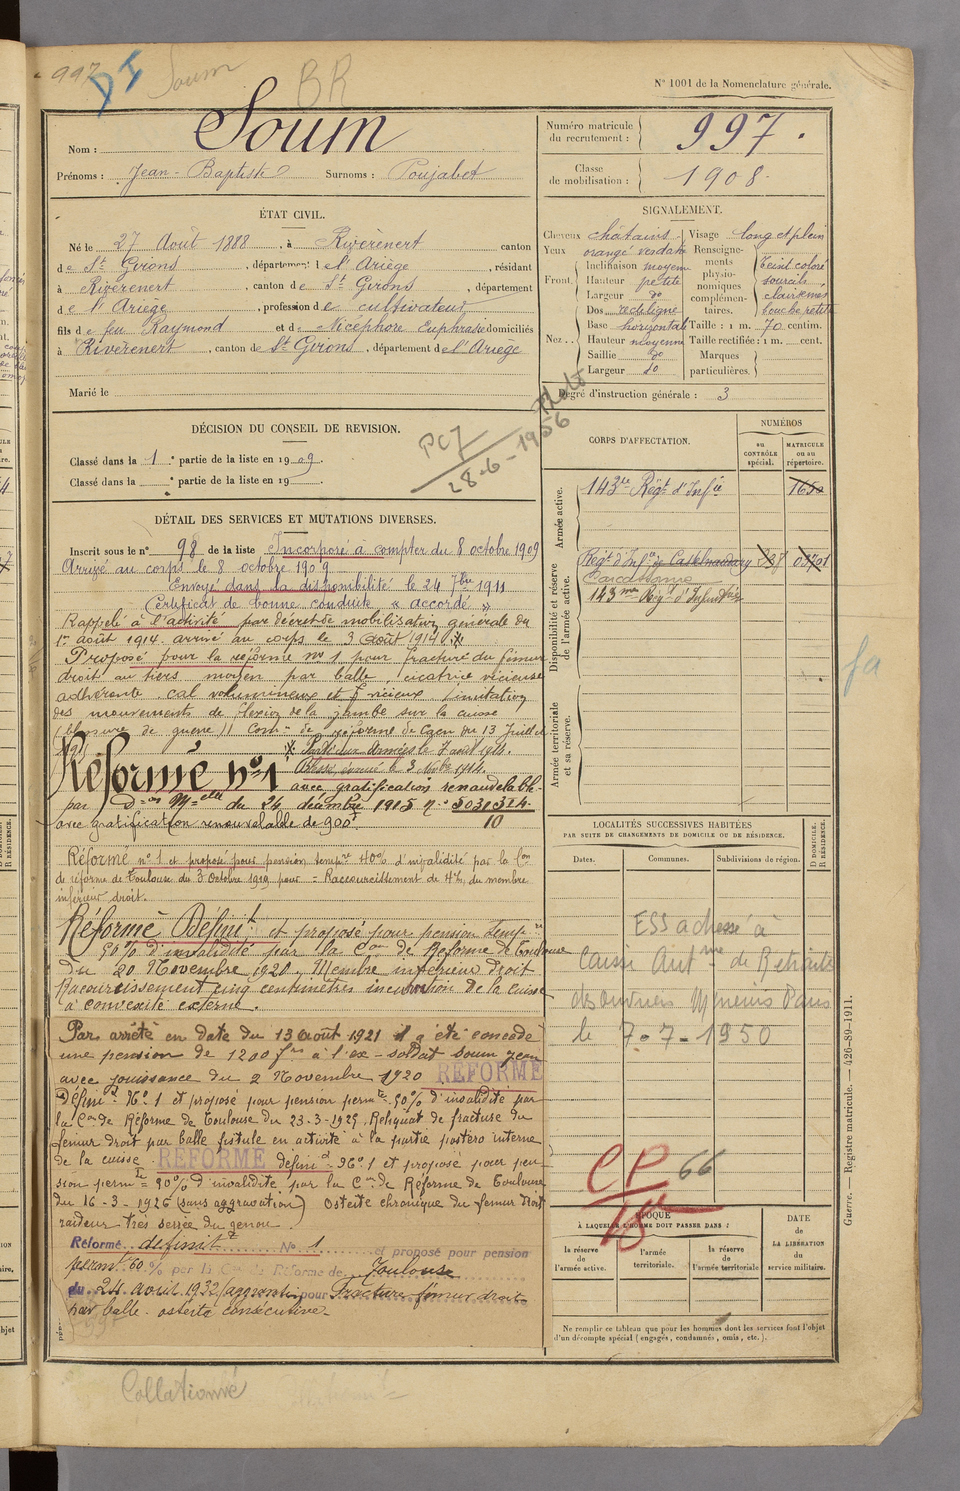 997
DI
Soum
BR
N° 1001 de la Nomenclature générale.
Nom : Soum
Prénoms : Jean-Baptiste Surnoms : Poujabet
Numéro matricule du recrutement : 997.
Classe de mobilisation : 1908
ÉTAT CIVIL.
Né le 27 Août 1888, à Rivèrenert canton
de St Girons, département de l'Ariège, résidant
à Rivèrenert, canton de St Girons, département
de l'Ariège, profession de cultivateur
fils de feu Raymond et de Nicéphore Euphrasie domiciliés
à Rivèrenert, canton de St Girons, département de l'Ariège
Marié le
SIGNALEMENT.
Cheveux châtains
Yeux orangé verdatr
Front. Inclinaison moyenne
Hauteur petite
Largeur do
Nez.. Dos rectiligne
Base horizontale
Hauteur moyenne
Saillie do
Largeur do
Visage long et plein
Renseignements physionomiques complémentaires. Teint coloré
sourcils
clairsemés
bouche petite
Taille : 1 m. 70 centim.
Taille rectifiée : 1 m. cent.
Marques particulières.
Degré d'instruction générale : 3
DÉCISION DU CONSEIL DE REVISION.
Classé dans la 1e partie de la liste en 1909.
Classé dans la e partie de la liste en 19
28-6-1956
DÉTAIL DES SERVICES ET MUTATIONS DIVERSES.
Inscrit sous le n° 98 de la liste Incorporé à compter du 8 octobre 1909
Arrivé au corps le 8 octobre 1909
Envoyé dans la disponibilité le 24 7bre 1911
Certificat de bonne conduite « accordé »
Rappelé à l'activité par décret de mobilisation générale du
1er août 1914. arrivé au corps le 3 août 1914
Proposé pour la réforme n° 1 pour fracture du fémur
droit au tiers moyen par balle, cicatrice vicieuse
adhérente, cal volumineux et vicieux limitation
des mouvements de flexion de la jambe sur la cuisse
(blessure de guerre) Com- de réforme de Caen du 13 Juillet
Parti aux Armées le 7 août 1914.
Blessé, évacué le 3 Novbre 1914.
Réformé n° 1 avec gratification renouvelable
par Don Melle du 24 décembre 1915 n° 5031324
10
avec gratification renouvelable de 900f
Réformé n° 1 et proposé pour pension tempre 40% d'invalidité par la Con
de réforme de Toulouse du 3 Octobre 1919 pour = Raccourcissement de 4% du membre
inférieur droit.
Réformé Définit et proposé pour pension tempre
50% d'invalidité par la Con de Réforme de Toulouse
du 20 Novembre 1920, Membre inférieur droit
Raccourcissement cinq centimètres incurvation de la cuisse
à convexité externe.
Par arrêté en date du 13 août 1921 il a été concédé
une pension de 1200 frs à l'ex-soldat Soum Jean
avec jouissance du 2 Novembre 1920 REFORME
Définit N° 1 et proposé pour pension permte 50% d'invalidité par
la Con de Réforme de Toulouse du 23-3-1925 Reliquat de fracture du
fémur droit par balle fistule en activité à la partie postéro interne
de la cuisse. REFORME définit N° 1 et proposé pour pen-
sion permte = 90% d'invalidité par la Con de Réforme de Toulouse
du 16-3-1926 (sans aggravation) Ostéite chronique du fémur droit
raideur très serrée du genou.
Réformé définit N° 1 et proposé pour pension
permt 60% par la Con de Réforme de Toulouse
du 24 avril 1932 (aggravation) pour Fracture fémur droit
par balle. ostéite consécutive
CORPS D'AFFECTATION.
NUMÉROS
au CONTRÔLE spécial.
MATRICULE ou au répertoire.
Armée active.
143me Régt d'Infie 1650
Disponibilité et réserve de l'armée active.
Régt d'Infie de Castelnaudary
Carcassonne
143me Rég d'Infanterie
Armée territoriale et sa réserve.
fa
LOCALITÉS SUCCESSIVES HABITÉES
PAR SUITE DE CHANGEMENTS DE DOMICILE OU DE RÉSIDENCE.
Dates. Communes. Subdivisions de région. D. DOMICILE. R. RÉSIDENCE.
ESS adressé à
Caisse Autme de Retraite
des ouvriers Mineurs Paris
le 7-7-1950
CP 66
ÉPOQUE
À LAQUELLE L'HOMME DOIT PASSER DANS :
la réserve de l'armée active.
l'armée territoriale.
la réserve de l'armée territoriale
DATE de LA LIBÉRATION du service militaire.
Ne remplir ce tableau que pour les hommes dont les services font l'objet
d'un décompte spécial (engagés, condamnés, omis, etc.).
Guerre. — Registre matricule. — 426-89-1911.
Collationné